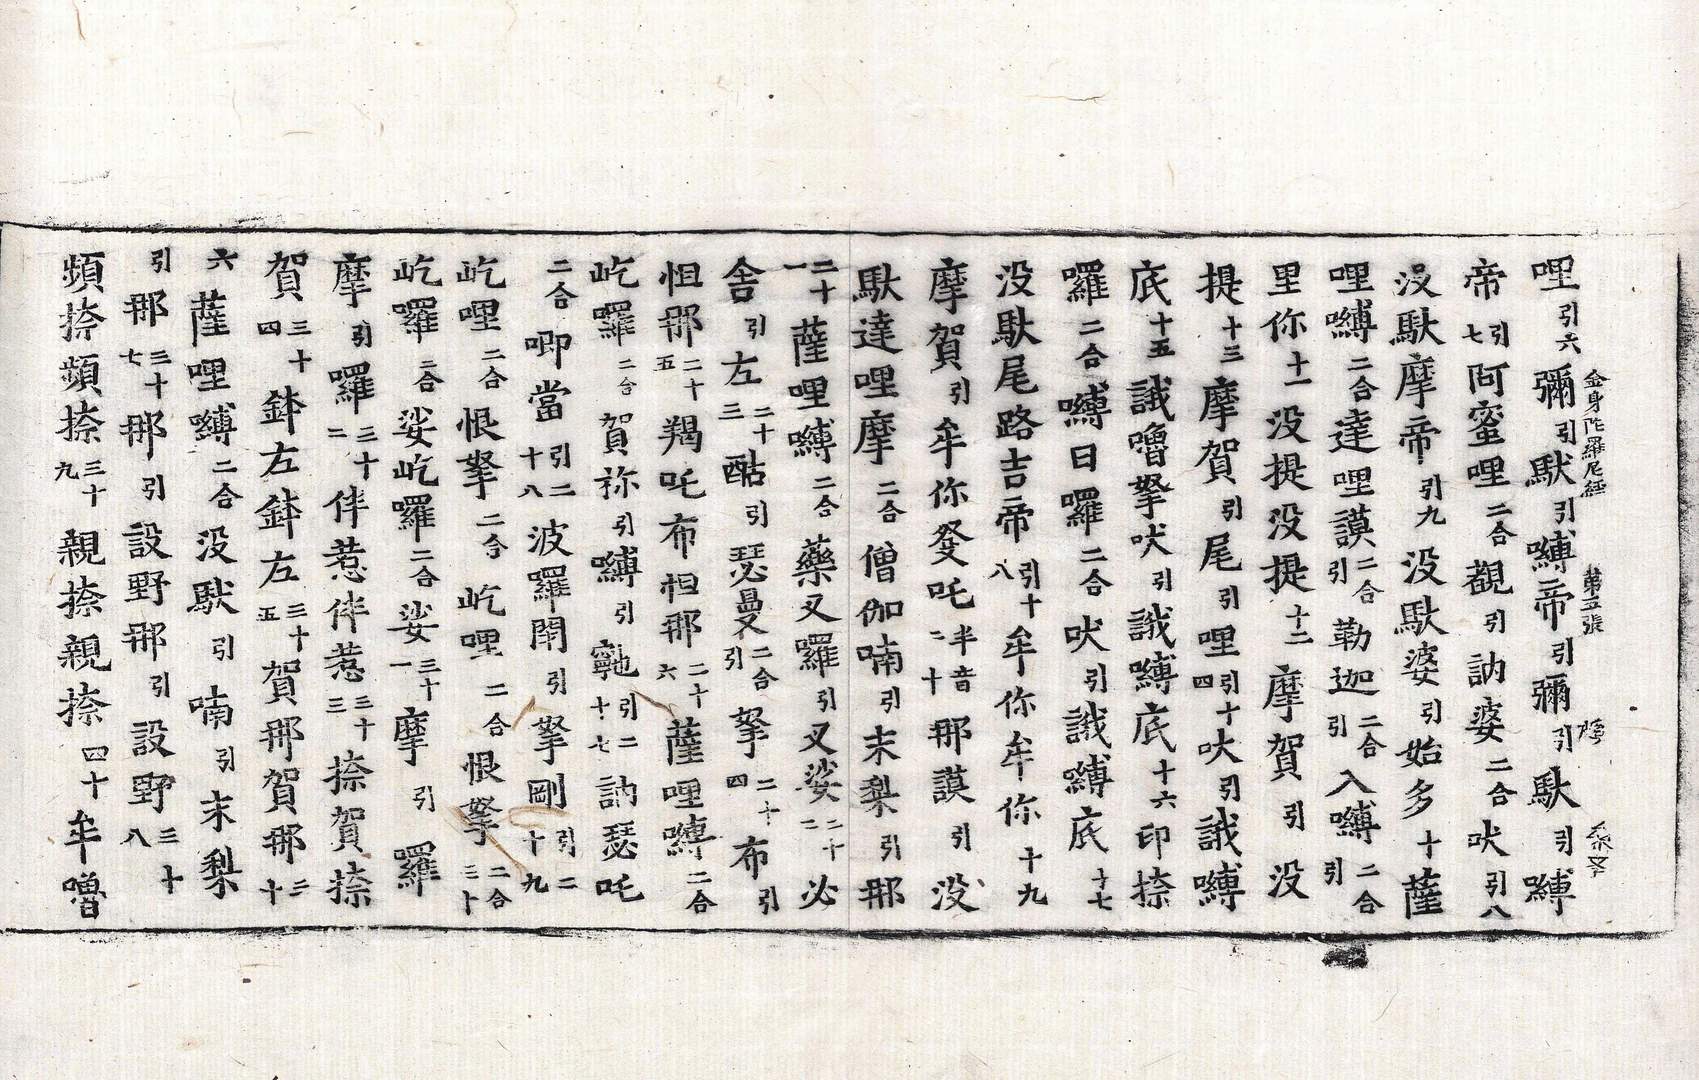 金身陀羅尼經 第五張
哩引六彌引馱引嚩帝引彌引馱引嚩
帝引七阿蜜哩二合覩引訥婆二合吠引八
沒馱摩帝引九沒馱婆引始多十薩
哩嚩二合達哩謨二合引勒迦二合引入嚩二合引
里你十一沒提沒提十二摩賀引沒
提十三摩賀引尾引哩引十四吠引誐嚩
底十五誐嚕拏吠引誐嚩底十六印捺
囉二合嚩日囉二合吠引誐嚩底十七
沒馱尾路吉帝引十八牟你牟你十九
摩賀引牟你發吒半音二十那謨引沒
馱達哩摩二合僧伽喃引末梨引那
二十一薩哩嚩二合藥叉囉引叉娑二十二必
舍引左二十三酤引瑟二合引拏二十四布引
怛那二十五羯吒布怛那二十六薩哩嚩二合
屹囉二合賀祢引嚩引引二十七訥瑟吒
二合唧當引二十八波囉閉引拏剛引二十九
屹哩二合恨拏二合屹哩二合恨拏二合三十
屹囉二合娑屹囉二合娑三十一摩引囉
摩引囉三十二伴惹伴惹三十三捺賀捺
賀三十四鉢左鉢左三十五賀那賀那三十
六薩哩嚩二合沒馱引喃引末梨
引那三十七那引設野那引設野三十八
頻捺頻捺三十九親捺親捺四十牟嚕